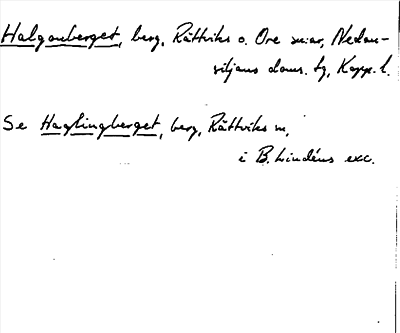 Halgonberget, berg, Rättviks o. Ore snar, Nedan-
siljans doms. tg, Kopp. l.
Se Haglingberget, berg, Rättviks sn,
i B. Lindéns exc.